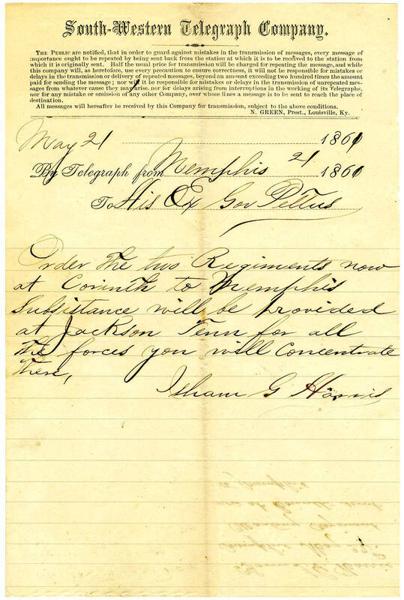 South-Western Telegraph Company.
THE PUBLIC are notified, that in order to guard against mistakes in the transmission of messages, every message of
importance ought to be repeated by being sent back from the station at which it is to be received to the station from
which it is originally sent. Half the usual price for transmission will be charged for repeating the message, and while
this company will, as heretofore, use every precaution to ensure correctness, it will not be responsible for mistakes or
delays in the transmission or delivery of repeated messages, beyond an amount exceeding two hundred times the amount
paid for sending the message; nor will it be responsible for mistakes or delays in the transmission of unrepeated mes-
sages from whatever cause they may arise, nor for delays arising from interruptions in the working of its Telegraphs,
nor for any mistake or omission of any other Company, over whose lines a message is to be sent to reach the place of
destination.
All messages will hereafter be received by this Company for transmission, subject to the above conditions.
N. GREEN, Prest., Louisville, Ky.
May 21 1861
By Telegraph from Memphis 21 1861
To His Ex Gov Pettus
Order The two Regiments now
at Corinth to Memphis
Subsistance will be provided
at Jackson Tenn for all
The forces you will Concentrate
There,
Isham G Harris